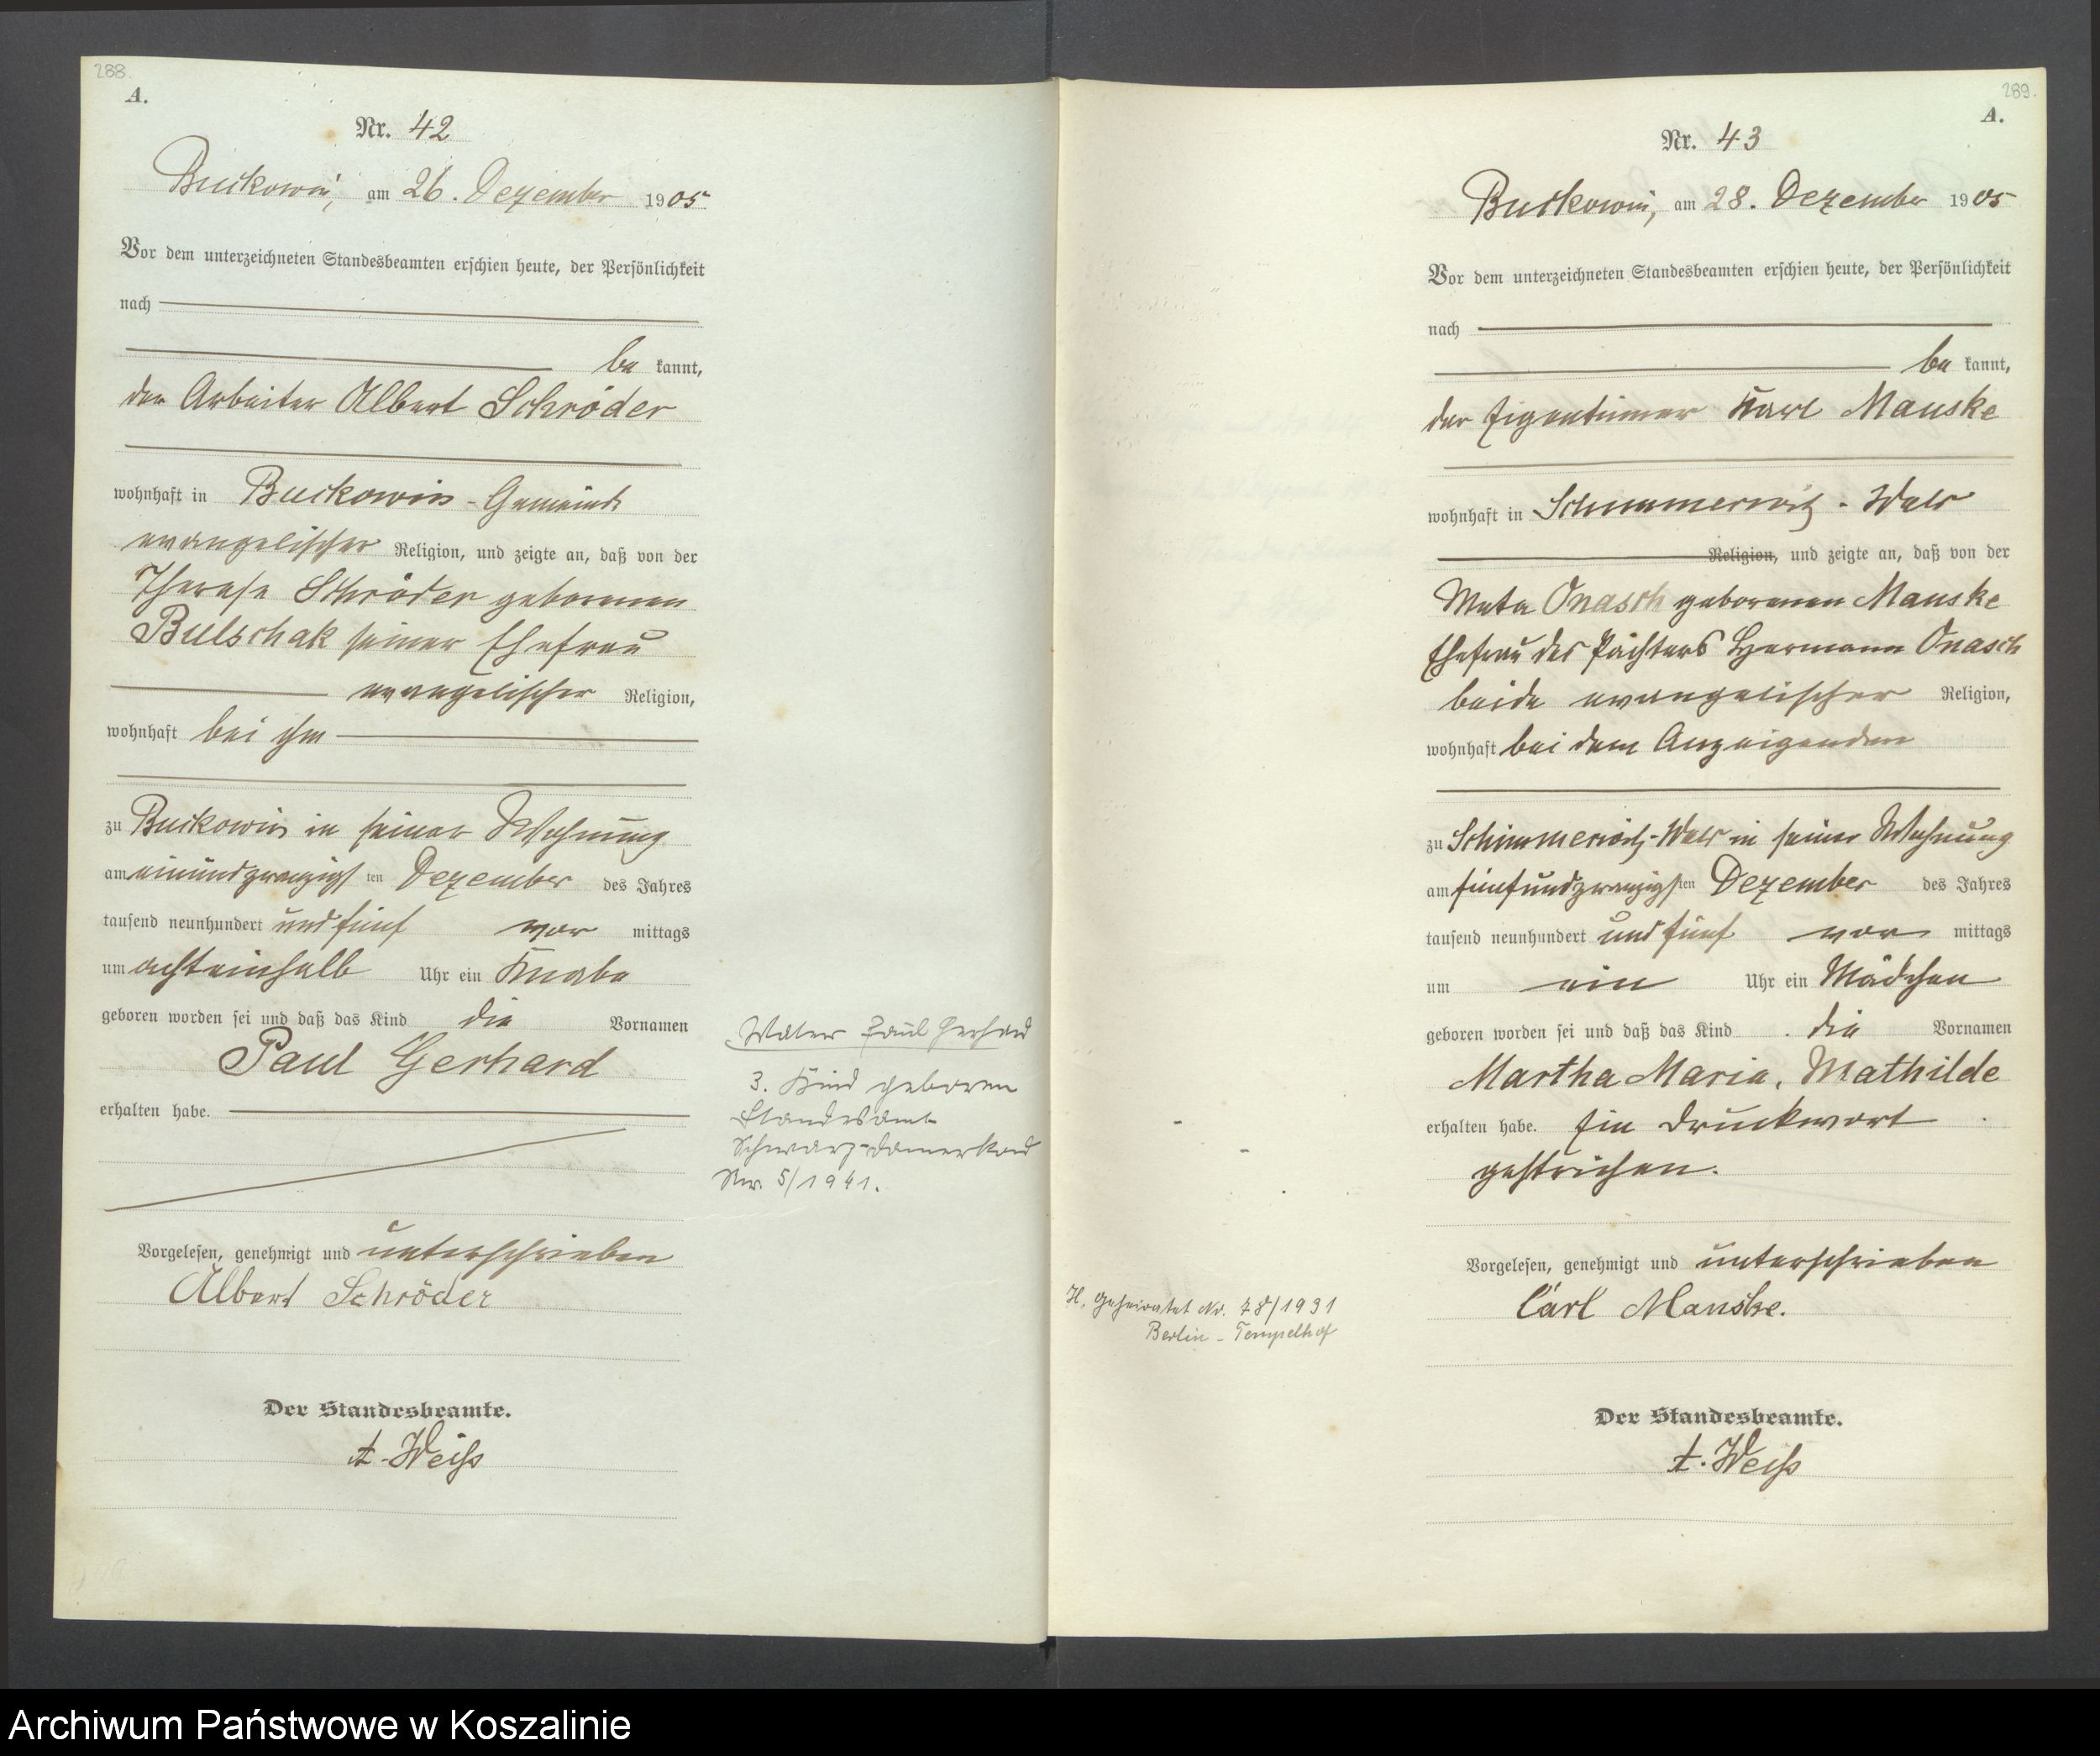 288.
A.
Nr. 42
Buckowin, am 26. Dezember 1905
Vor dem unterzeichneten Standesbeamten erschien heute, der Persönlichkeit
nach
be kannt,
der Arbeiter Albert Schröder
wohnhaft in Buckowin-Gemeinde
evangelischer Religion, und zeigte an, daß von der
Therese Schröder geborenen
Bulschak seiner Ehefrau
evangelischer Religion,
wohnhaft bei ihm
zu Buckowin in seiner Wohnung
am einundzwanzigsten Dezember des Jahres
tausend neunhundert und fünf vor mittags
um achteinhalb Uhr ein Knabe
geboren worden sei und daß das Kind die Vornamen
Paul Gerhard
erhalten habe.
Vorgelesen, genehmigt und unterschrieben
Albert Schröder
Der Standesbeamte.
A. Weiß
Paul Gerhard
3. Kind geboren
Standesamt
Schwarz-Damerkow
Nr. 5/1941.
289.
A.
Nr. 43
Buckowin, am 28. Dezember 1905
Vor dem unterzeichneten Standesbeamten erschien heute, der Persönlichkeit
nach
be kannt,
der Eigentümer Karl Manske
wohnhaft in Schimmerwitz-
Religion, und zeigte an, daß von der
Meta Onasch geborenen Manske
Ehefrau des Pächters Hermann Onasch
beide evangelischer Religion,
wohnhaft bei dem Anzeigenden
zu Schimmerwitz- in seiner Wohnung
am fünfundzwanzigsten Dezember des Jahres
tausend neunhundert und fünf vor mittags
um ein Uhr ein Mädchen
geboren worden sei und daß das Kind die Vornamen
Martha Maria, Mathilde
erhalten habe. Ein Druckwort
gestrichen.
Vorgelesen, genehmigt und unterschrieben
Carl Manske.
Der Standesbeamte.
A. Weiß
geheiratet Nr. 78/1931
Berlin-Tempelhof
Archiwum Państwowe w Koszalinie